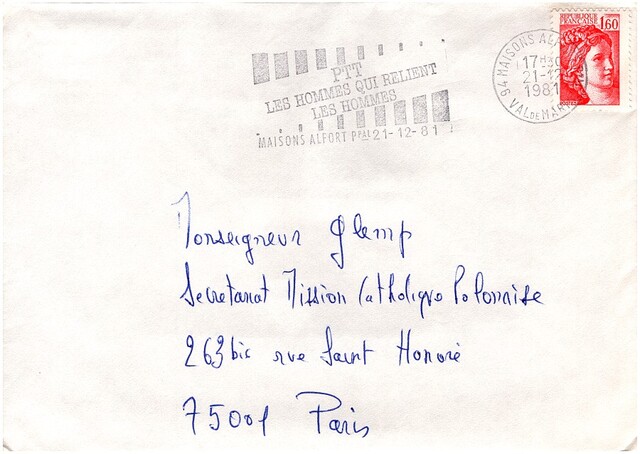 REPUBLIQUE
FRANÇAISE 1,60
PTT
LES HOMMES QUI RELIENT
LES HOMMES
MAISONS ALFORT PPAL 21-12-81
94 MAISONS AL
17H30
21-12
1981
VAL DE MAR
Monseigneur Glemp
Secretariat Mission Catholique Polonaise
263 bis rue Saint Honoré
75001 Paris